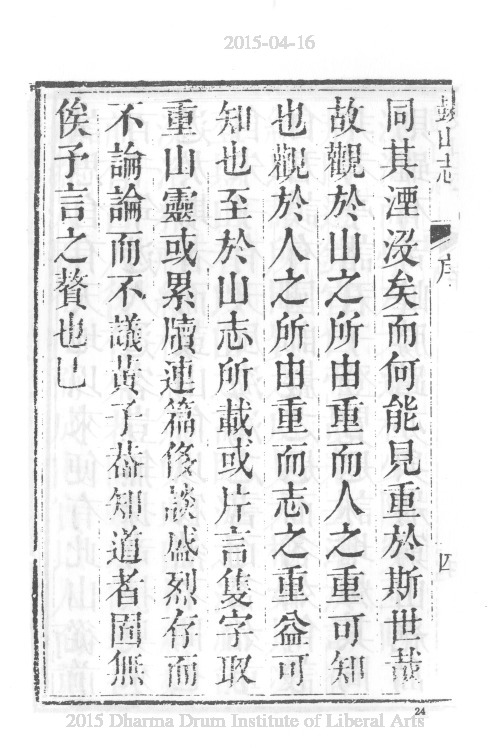 2015-04-16
鼓山志 序 四
同其湮沒矣而何能見重於斯世哉
故觀於山之所由重而人之重可知
也觀於人之所由重而志之重益可
知也至於山志所載或片言隻字取
重山靈或累牘連篇侈談盛烈存而
不論論而不議黃子葢知道者固無
俟予言之贅也已
24
2015 Dharma Drum Institute of Liberal Arts